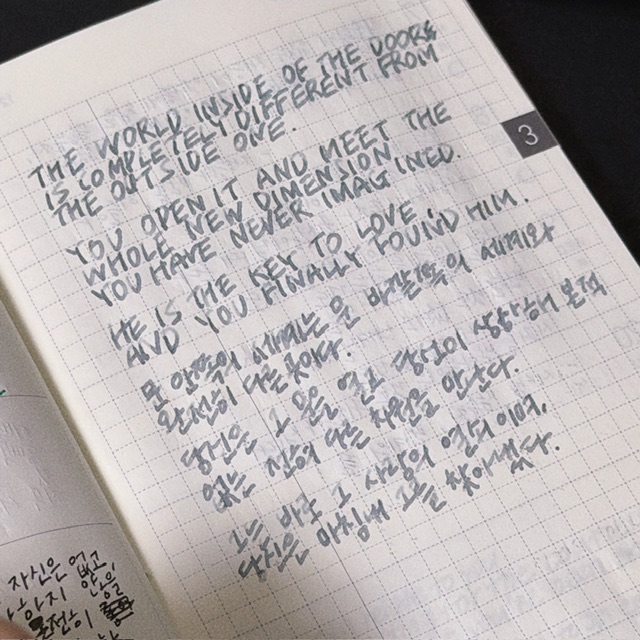 THE WORLD INSIDE OF THE DOORS
IS COMPLETELY DIFFERENT FROM
THE OUTSIDE ONE.
YOU OPEN IT AND MEET THE
WHOLE NEW DIMENSION
YOU HAVE NEVER IMAGINED.
HE IS THE KEY TO LOVE,
AND YOU FINALLY FOUND HIM.
문 안쪽의 세계는 문 바깥쪽의 세계와
완전히 다른 곳이다.
당신은 그 문을 열고 당신이 상상해본 적
없는 전혀 다른 차원을 만난다.
그는 바로 그 사랑의 열쇠이며,
당신은 마침내 그를 찾아냈다.
3
자신은 없고